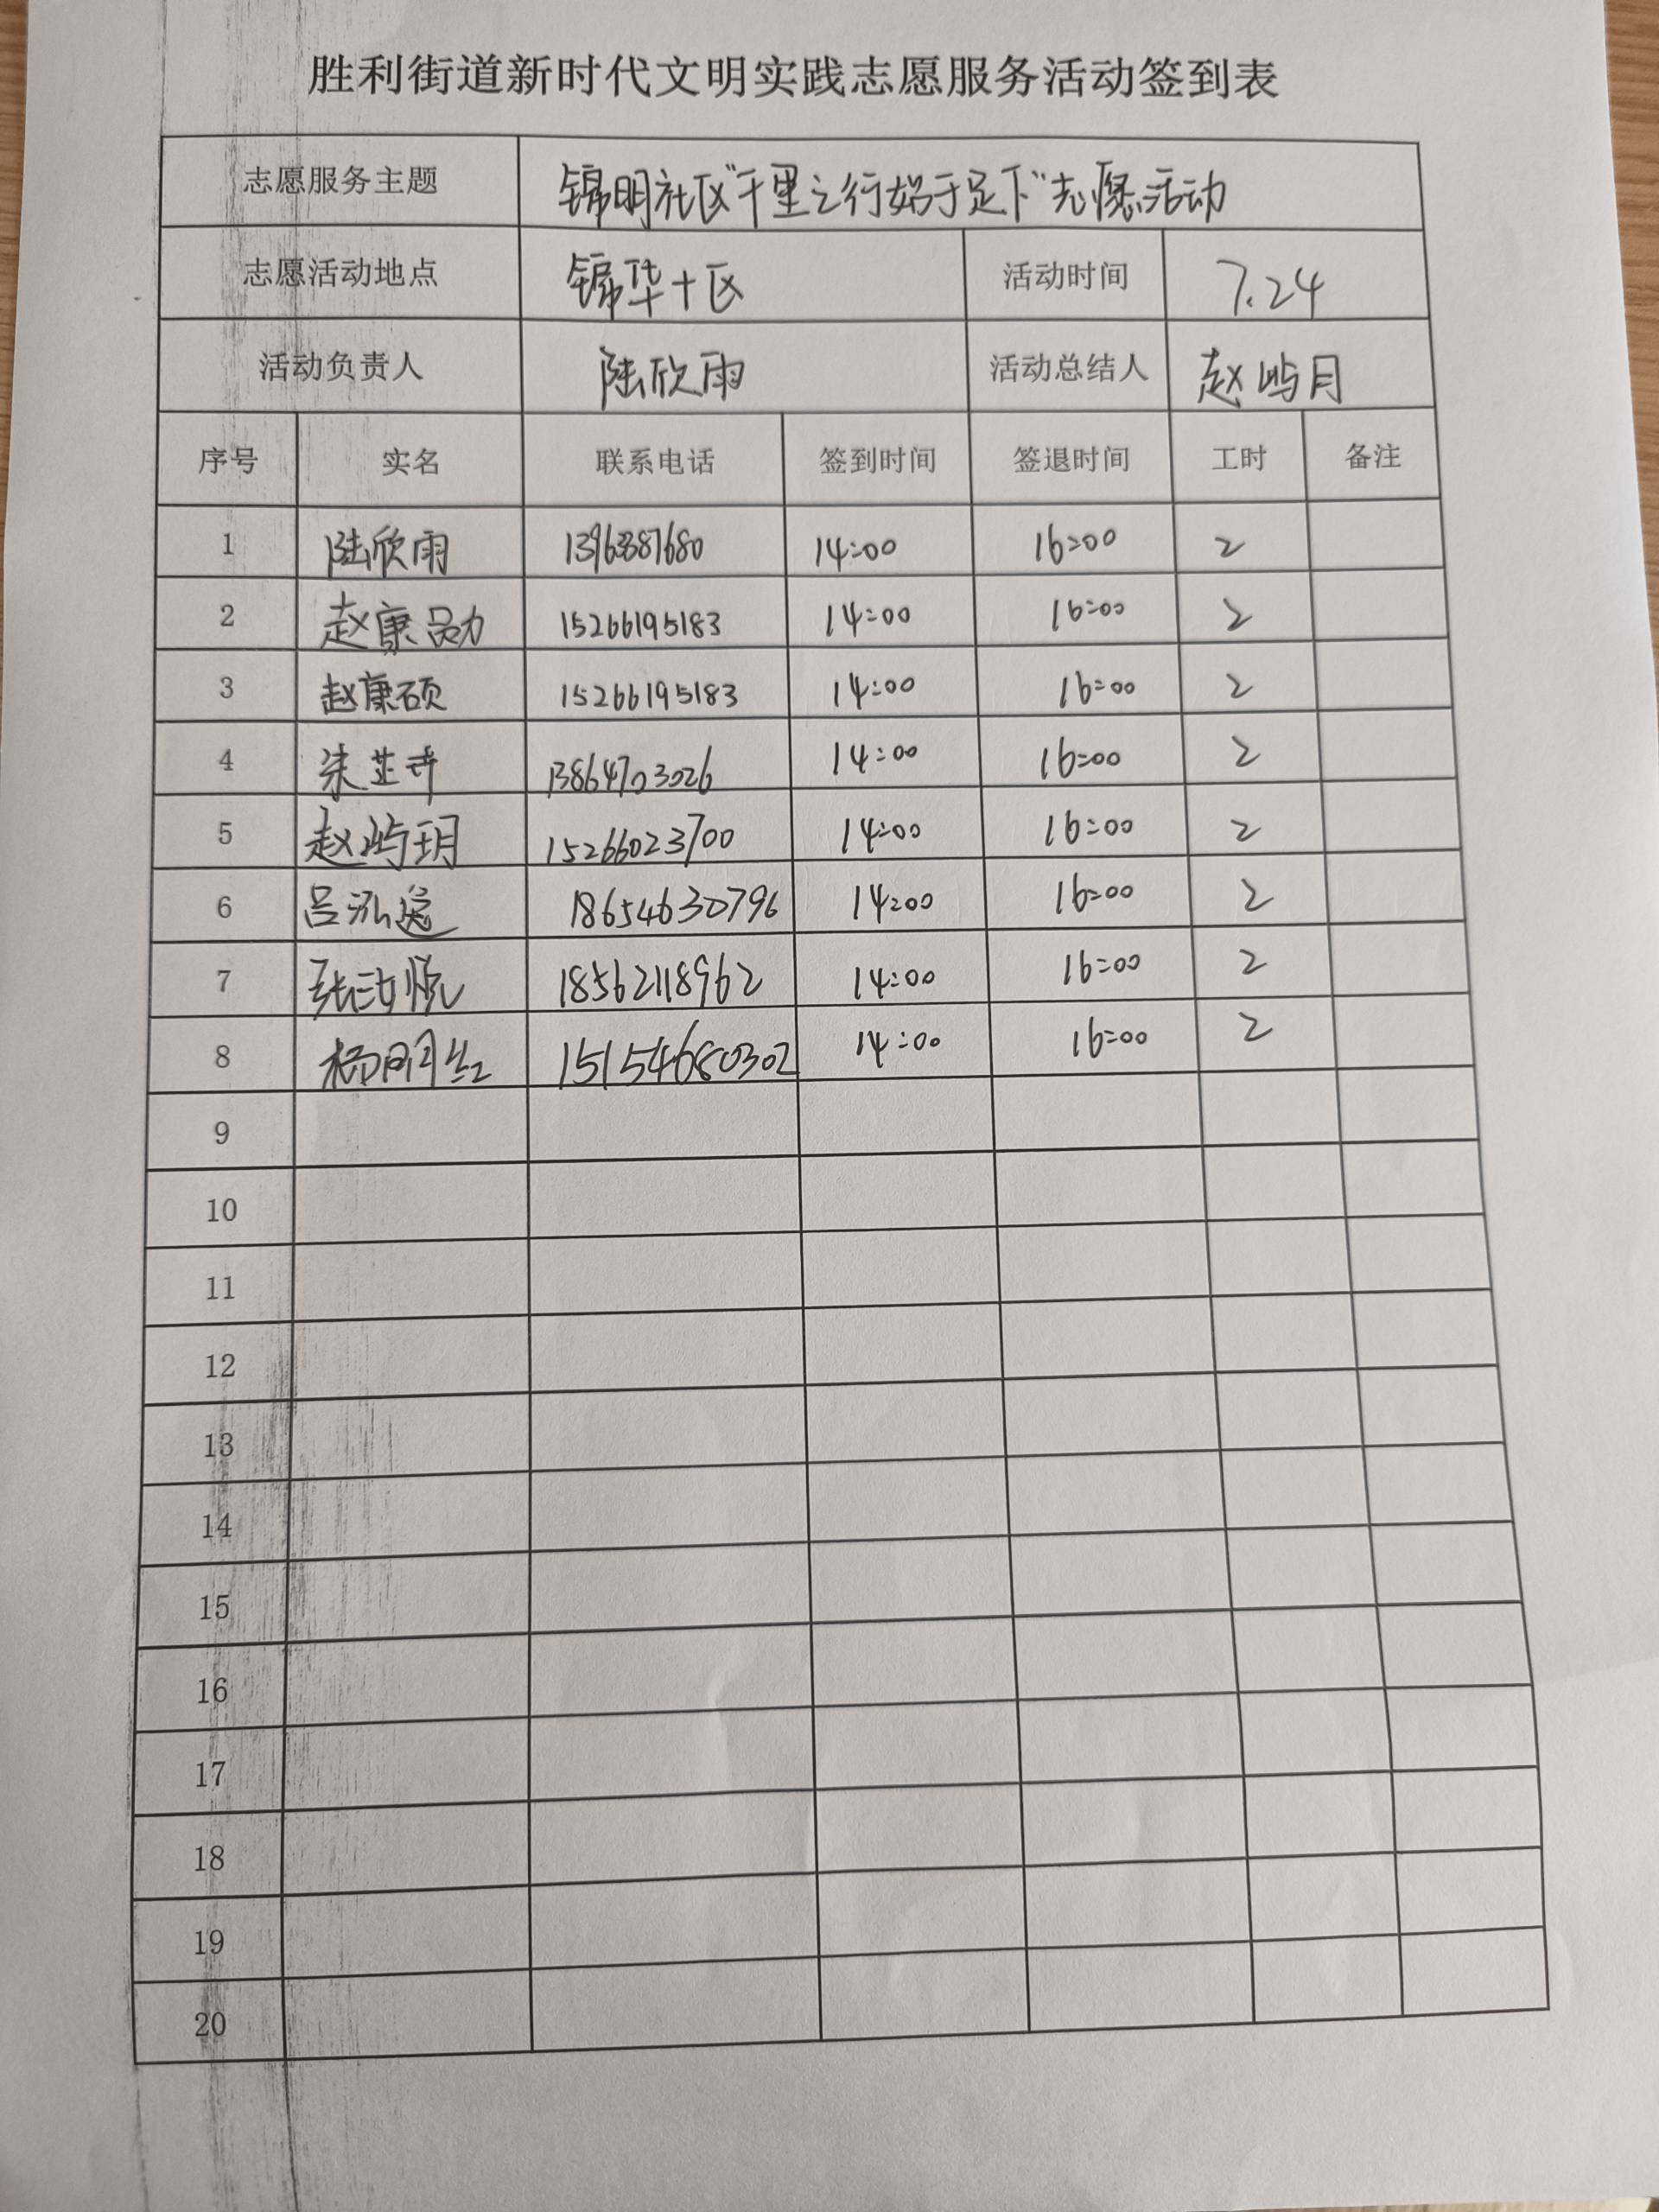 胜利街道新时代文明实践志愿服务活动签到表
志愿服务主题 锦明社区"千里之行始于足下"志愿活动
志愿活动地点 锦华十区 活动时间 7.24
活动负责人 陆欣雨 活动总结人 赵屿月
序号 实名 联系电话 签到时间 签退时间 工时 备注
1 陆欣雨 14:00 16:00 2
2 赵康勖 15266195183 14:00 16:00 2
3 赵康硕 15266195183 14:00 16:00 2
4 13864703026 14:00 16:00 2
5 赵屿玥 15266023700 14:00 16:00 2
6 吕泓逸 18654630796 14:00 16:00 2
7 18562118962 14:00 16:00 2
8 杨明红 15154680302 14:00 16:00 2
9
10
11
12
13
14
15
16
17
18
19
20